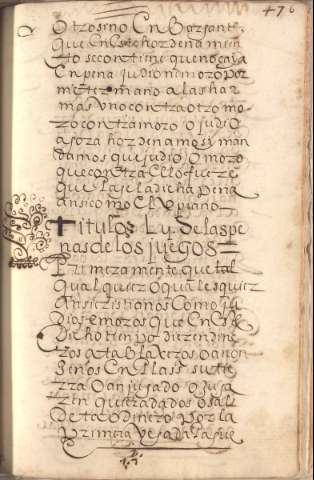 476
Otroseno En Barzante
que En Este hordenamien
to se contiene que no caya
En pena judio ni moro por
meter mano a las har
mas uno contra otro mo
ro contra moro o judio
agora hordenamos i man
damos que judio o moro
que contra Ello fuere
que Page la dicha Pena
ansi como El xpiano
titulo Ly de las pe
nas de los juegos
Primeramente que tal
qual quier o quales quier
Ansi cristianos como ju
dios e moros que En Este
dicho tienpo
ros a tablaxeros o a non
En las su tie
rra o an jugado o juga
ren que a dados o sal
de ta o dinero Por la
Primera Vegada Pague